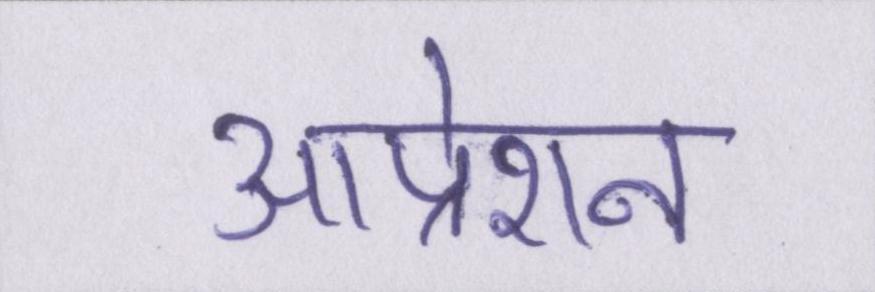 आप्रेशन